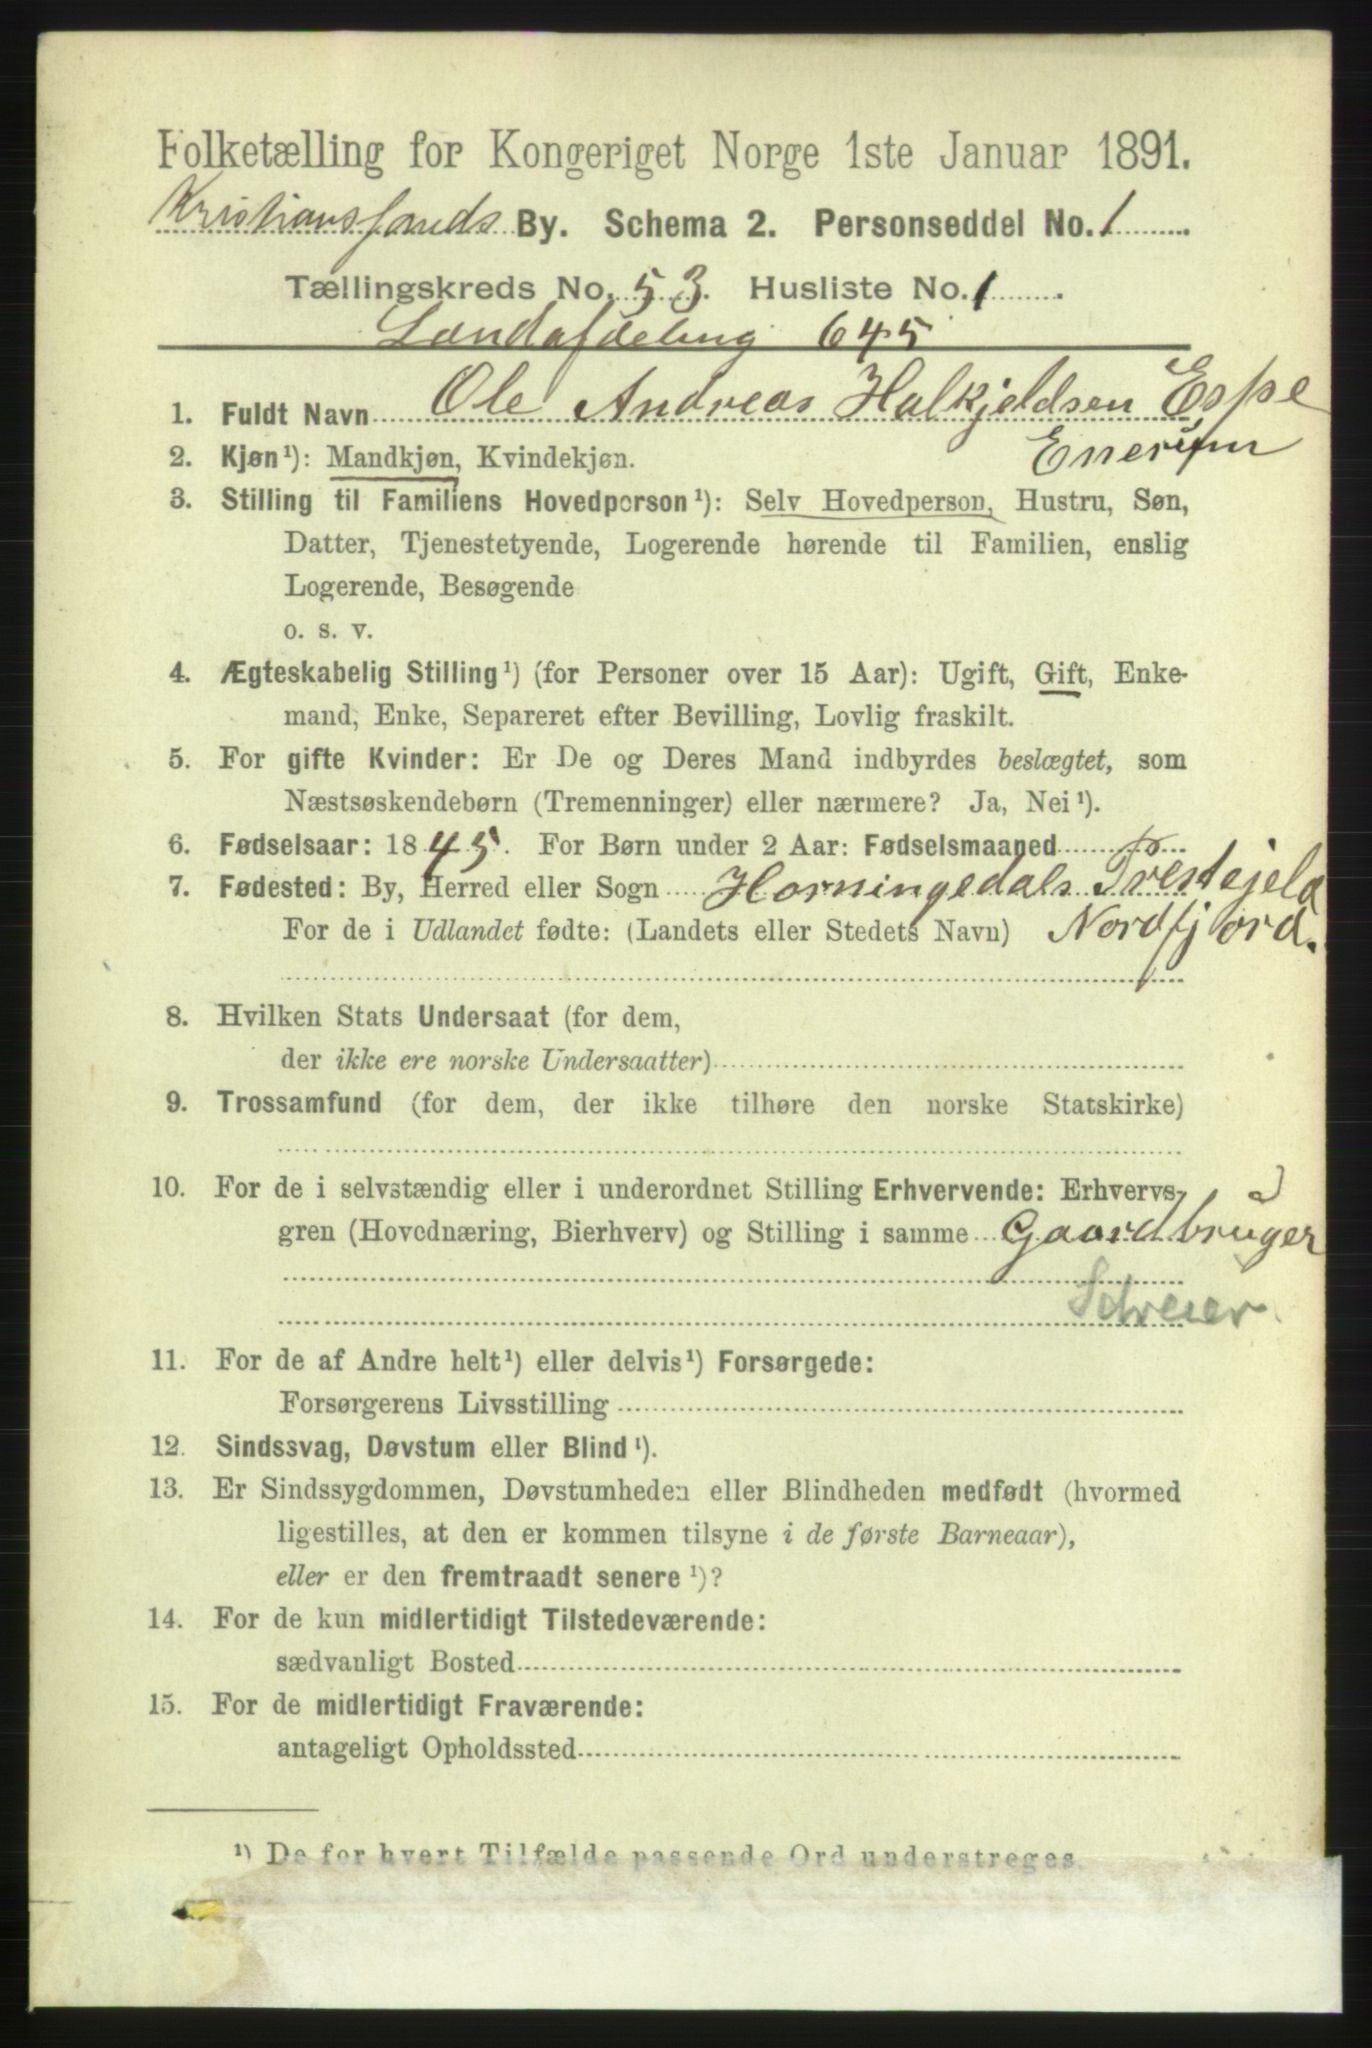 Folketælling for Kongeriget Norge 1ste Januar 1891.
Kristianssunds By. Schema 2. Personseddel No. 1
Tællingskreds No. 53. Husliste No. 1
Landafdeling 645
1. Fuldt Navn Ole Andreas Halkjeldsen Espe
2. Kjøn¹): Mandkjøn, Kvindekjøn.
3. Stilling til Familiens Hovedperson¹): Selv Hovedperson, Hustru, Søn,
Datter, Tjenestetyende, Logerende hørende til Familien, enslig
Logerende, Besøgende
o. s. v.
4. Ægteskabelig Stilling¹) (for Personer over 15 Aar): Ugift, Gift, Enke-
mand, Enke, Separeret efter Bevilling, Lovlig fraskilt.
5. For gifte Kvinder: Er De og Deres Mand indbyrdes beslægtet, som
Næstsøskendebørn (Tremenninger) eller nærmere? Ja, Nei¹).
6. Fødselsaar: 1845. For Børn under 2 Aar: Fødselsmaaned
7. Fødested: By, Herred eller Sogn Horningedals Prestejeld
For de i Udlandet fødte: (Landets eller Stedets Navn) Nordfjord.
8. Hvilken Stats Undersaat (for dem,
der ikke ere norske Undersaatter)
9. Trossamfund (for dem, der ikke tilhøre den norske Statskirke)
10. For de i selvstændig eller i underordnet Stilling Erhvervende: Erhvervs-
gren (Hovednæring, Bierhverv) og Stilling i samme Gaardbruger
11. For de af Andre helt¹) eller delvis¹) Forsørgede:
Forsørgerens Livsstilling
12. Sindssvag, Døvstum eller Blind¹).
13. Er Sindssygdommen, Døvstumheden eller Blindheden medfødt (hvormed
ligestilles, at den er kommen tilsyne i de første Barneaar),
eller er den fremtraadt senere¹)?
14. For de kun midlertidigt Tilstedeværende:
sædvanligt Bosted
15. For de midlertidigt Fraværende:
antageligt Opholdssted
¹) De for hvert Tilfælde passende Ord understreges.